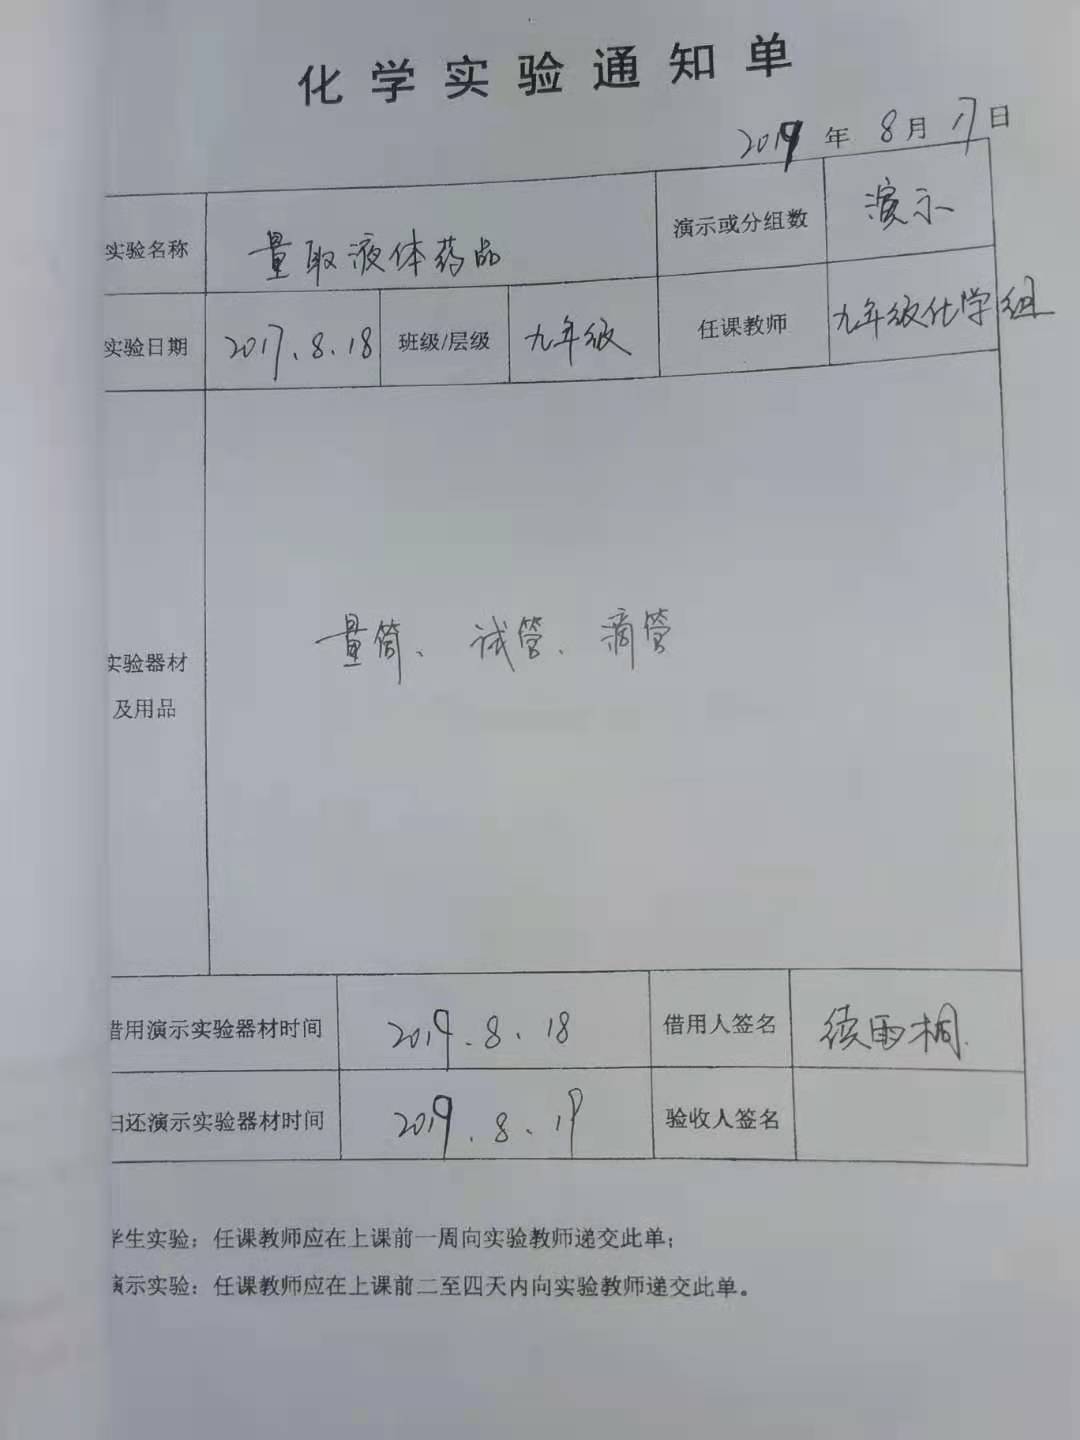 化学实验通知单
2019年8月17日
实验名称 量取液体药品 演示或分组数 演示
实验日期 2017.8.18 班级/层级 九年级 任课教师 九年级化学组
实验器材及用品 量筒、试管、滴管
借用演示实验器材时间 2019.8.18 借用人签名 续雨桐
归还演示实验器材时间 2019.8.19 验收人签名
学生实验：任课教师应在上课前一周向实验教师递交此单；
演示实验：任课教师应在上课前二至四天内向实验教师递交此单。